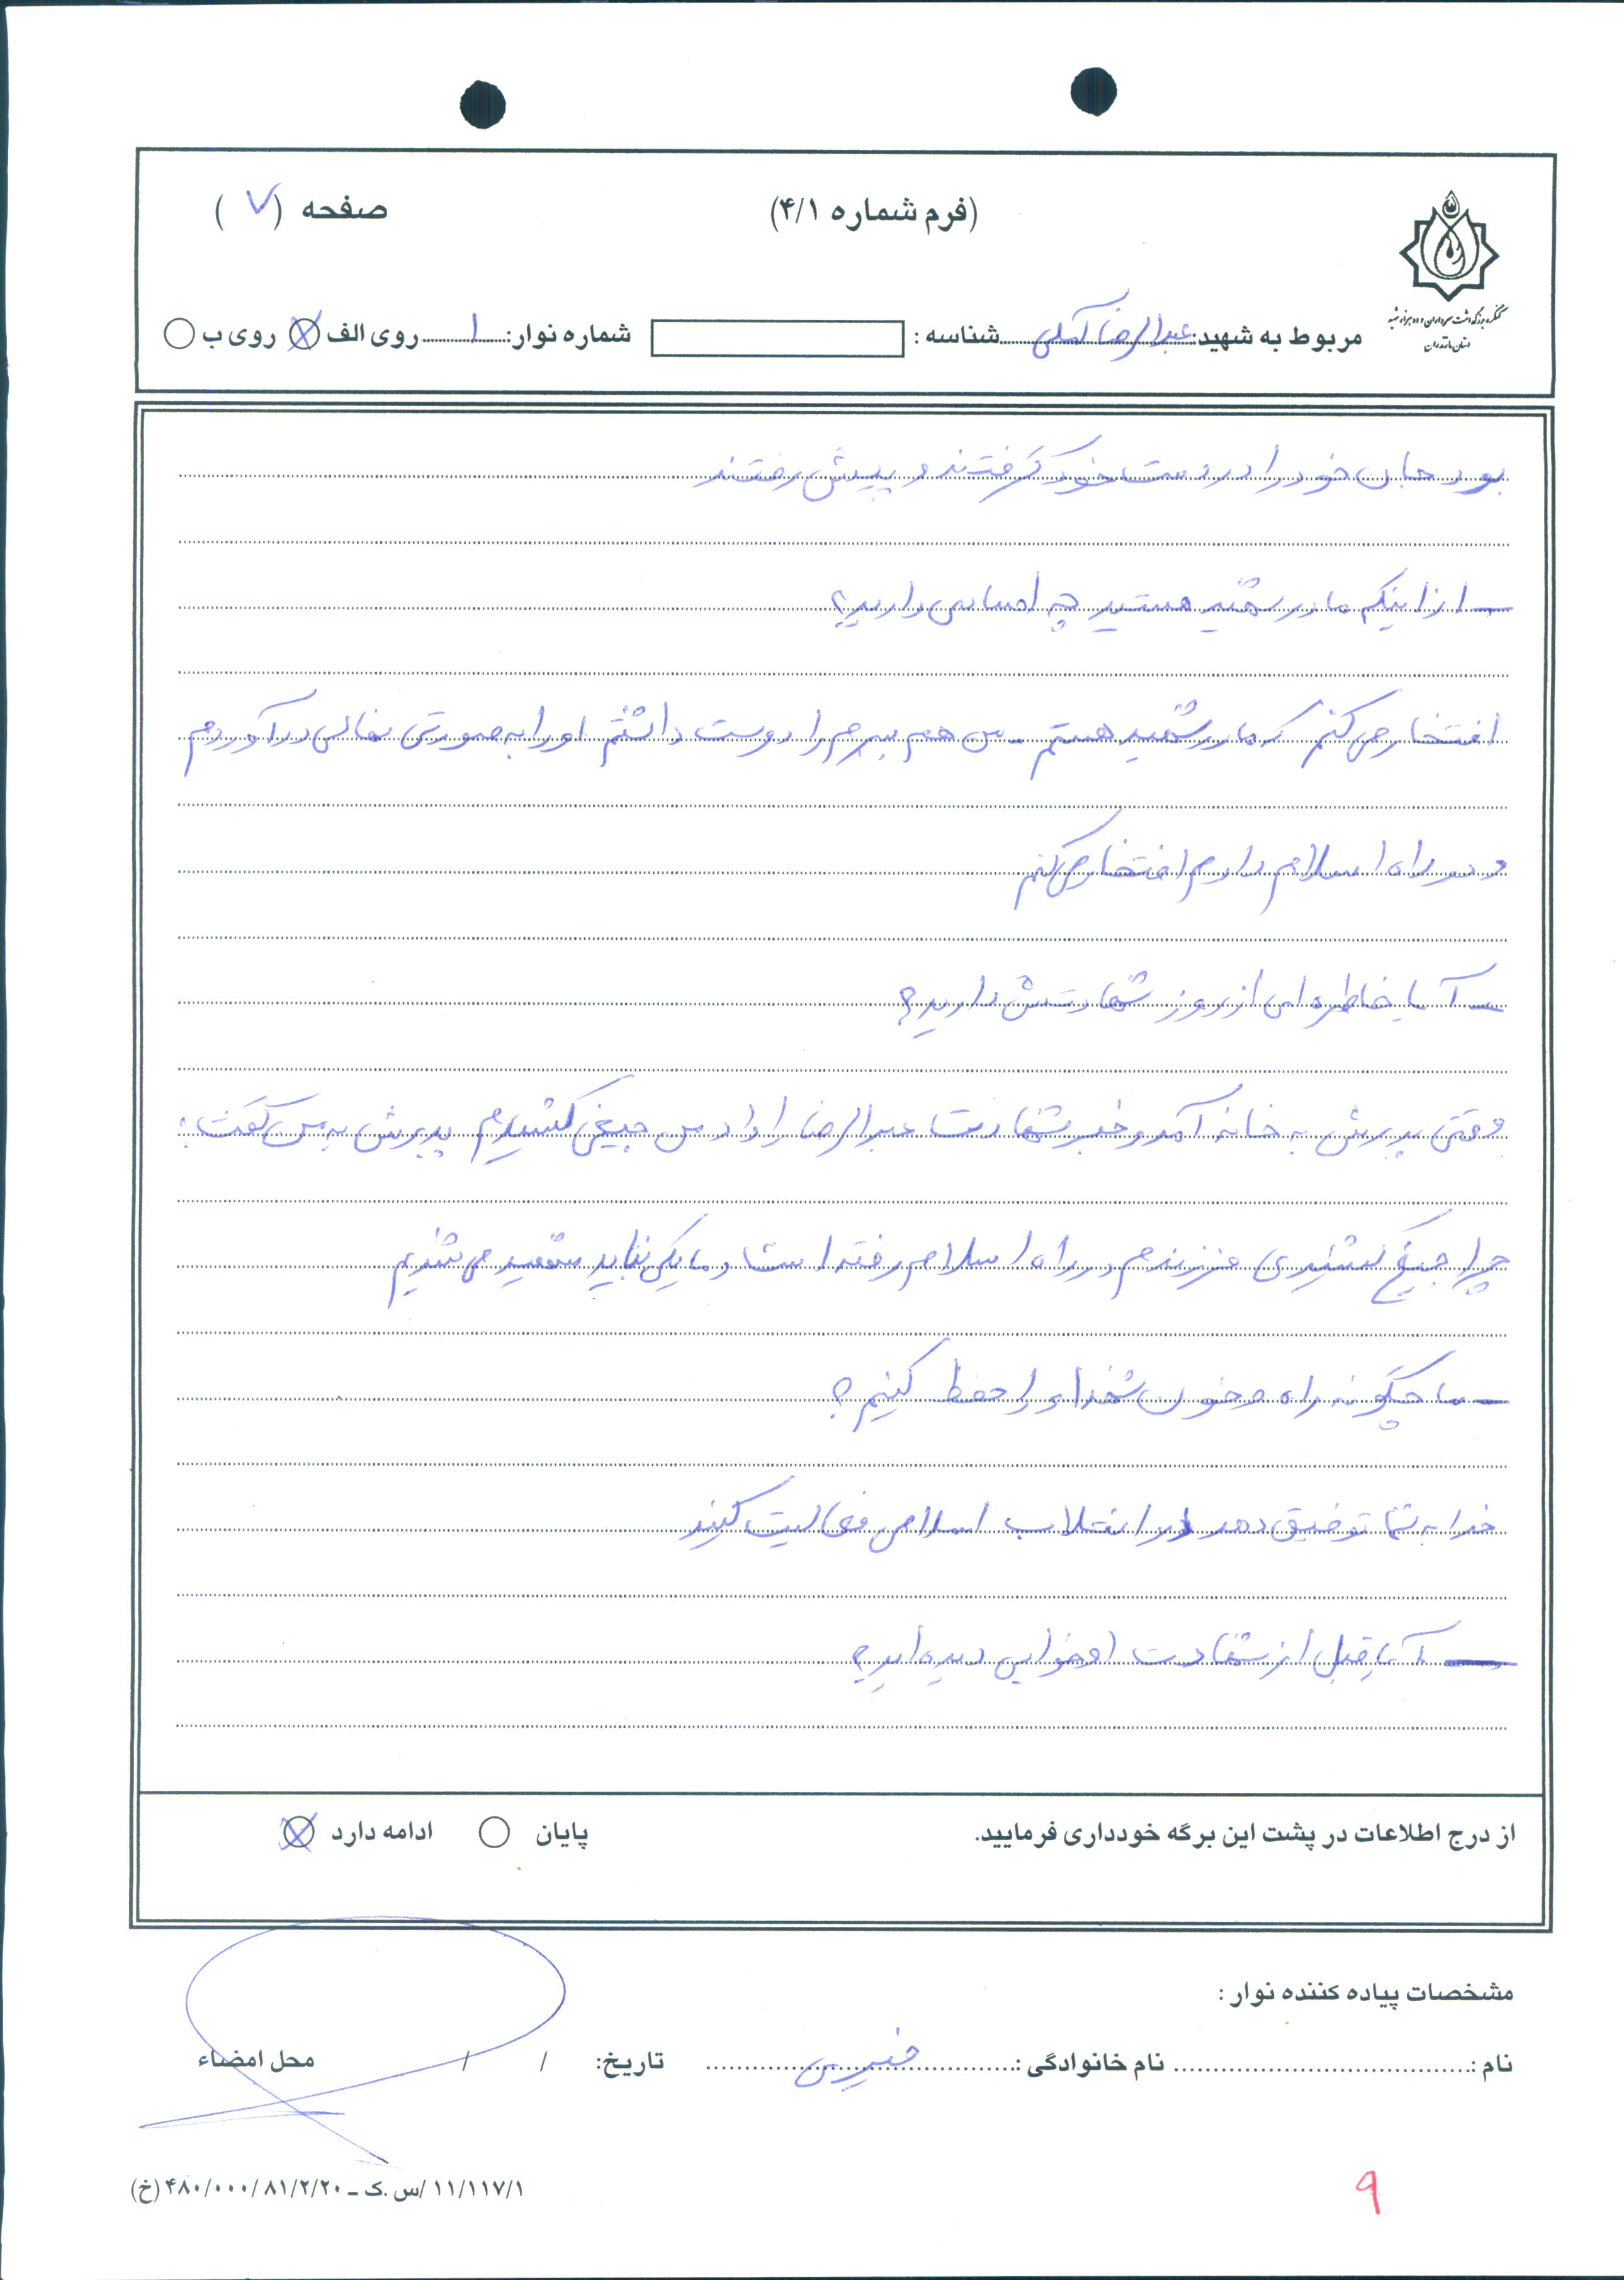 (فرم شماره ۴/۱)
صفحه (۷)
کنگره بزرگداشت سرداران و ده هزار شهید
استان مازندران
مربوط به شهید: عبدالرضا کملی شناسه : شماره نوار: ۱ روی الف روی ب
بود جان خود را در دست خود گرفتند و پیش رفتند
– از اینکه مادر شهید هستید چه احساسی دارید؟
افتخار می کنم که مادر شهید هستم . من هم پسرم را دوست داشتم او را به صورتی در آوردم
و در راه اسلام دادم افتخار می کنم
– آیا خاطره ای از روز شهادتش دارید؟
وقتی پدرش به خانه آمد و خبر شهادت عبدالرضا را داد من جیغی کشیدم پدرش به من گفت :
چرا جیغ کشیدی فرزندم در راه اسلام رفته است و ما یکی نباید شهید می شدیم
– ما چگونه راه و خون شهداء را حفظ کنیم ؟
خدا به شما توفیق دهد در انقلاب اسلامی فعالیت کنید
– آیا قبل از شهادت او خوابی دیده اید؟
از درج اطلاعات در پشت این برگه خودداری فرمایید.
پایان ادامه دارد
مشخصات پیاده کننده نوار :
نام : نام خانوادگی : تاریخ: / / محل امضاء
۱۱/۱۱۷/۱ /س .ک – ۴۸۰/۰۰۰/۸۱/۲/۲۰ (خ)
۹